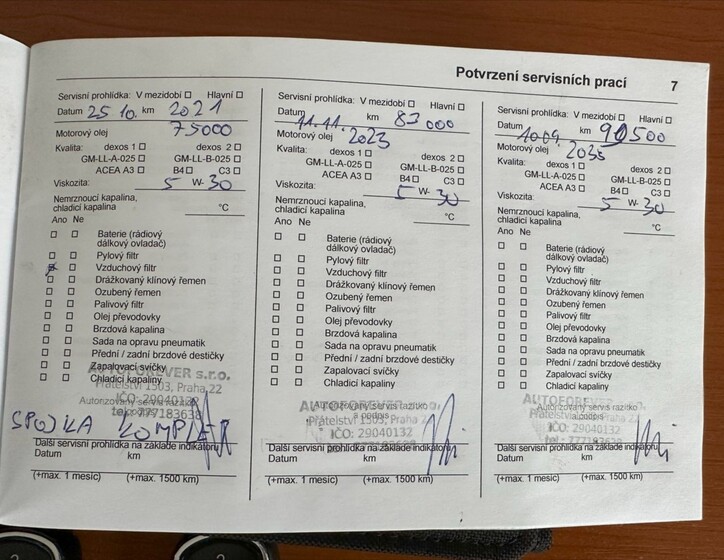 Potvrzení servisních prací 7
Servisní prohlídka: V mezidobí Hlavní
Datum 25 10. km 2021
Motorový olej 75000
Kvalita: dexos 1 dexos 2
GM-LL-A-025 GM-LL-B-025
ACEA A3 B4 C3
Viskozita: 5 W- 30
Nemrznoucí kapalina,
chladicí kapalina °C
Ano Ne
Baterie (rádiový
dálkový ovladač)
Pylový filtr
Vzduchový filtr
Drážkovaný klínový řemen
Ozubený řemen
Palivový filtr
Olej převodovky
Brzdová kapalina
Sada na opravu pneumatik
Přední / zadní brzdové destičky
Zapalovací svíčky
Chladicí kapaliny
AUTOFOREVER s.r.o.
Přátelství 1503, Praha 22
IČO: 29040132
Autorizovaný servis razítko
a podpis
tel.: 777183638
SPOJKA KOMPLET
Další servisní prohlídka na základě indikátoru
Datum km
(+max. 1 měsíc) (+max. 1500 km)
Servisní prohlídka: V mezidobí Hlavní
Datum 11.11. km 83 000
Motorový olej 2023
Kvalita: dexos 1 dexos 2
GM-LL-A-025 GM-LL-B-025
ACEA A3 B4 C3
Viskozita: 5 W- 30
Nemrznoucí kapalina,
chladicí kapalina °C
Ano Ne
Baterie (rádiový
dálkový ovladač)
Pylový filtr
Vzduchový filtr
Drážkovaný klínový řemen
Ozubený řemen
Palivový filtr
Olej převodovky
Brzdová kapalina
Sada na opravu pneumatik
Přední / zadní brzdové destičky
Zapalovací svíčky
Chladicí kapaliny
AUTOFOREVER
Autorizovaný servis razítko
a podpis
Přátelství 1503, Praha
IČO: 29040132
Další servisní prohlídka na základě indikátoru
Datum km
(+max. 1 měsíc) (+max. 1500 km)
Servisní prohlídka: V mezidobí Hlavní
Datum km
Motorový olej
Kvalita: dexos 1 dexos 2
GM-LL-A-025 GM-LL-B-025
ACEA A3 B4 C3
Viskozita: 5 W- 30
Nemrznoucí kapalina,
chladicí kapalina °C
Ano Ne
Baterie (rádiový
dálkový ovladač)
Pylový filtr
Vzduchový filtr
Drážkovaný klínový řemen
Ozubený řemen
Palivový filtr
Olej převodovky
Brzdová kapalina
Sada na opravu pneumatik
Přední / zadní brzdové destičky
Zapalovací svíčky
Chladicí kapaliny
AUTOFOREVER
Autorizovaný servis razítko
a podpis
Přátelství
IČO: 29040132
Další servisní prohlídka na základě indikátoru
Datum km
(+max. 1 měsíc) (+max. 1500 km)